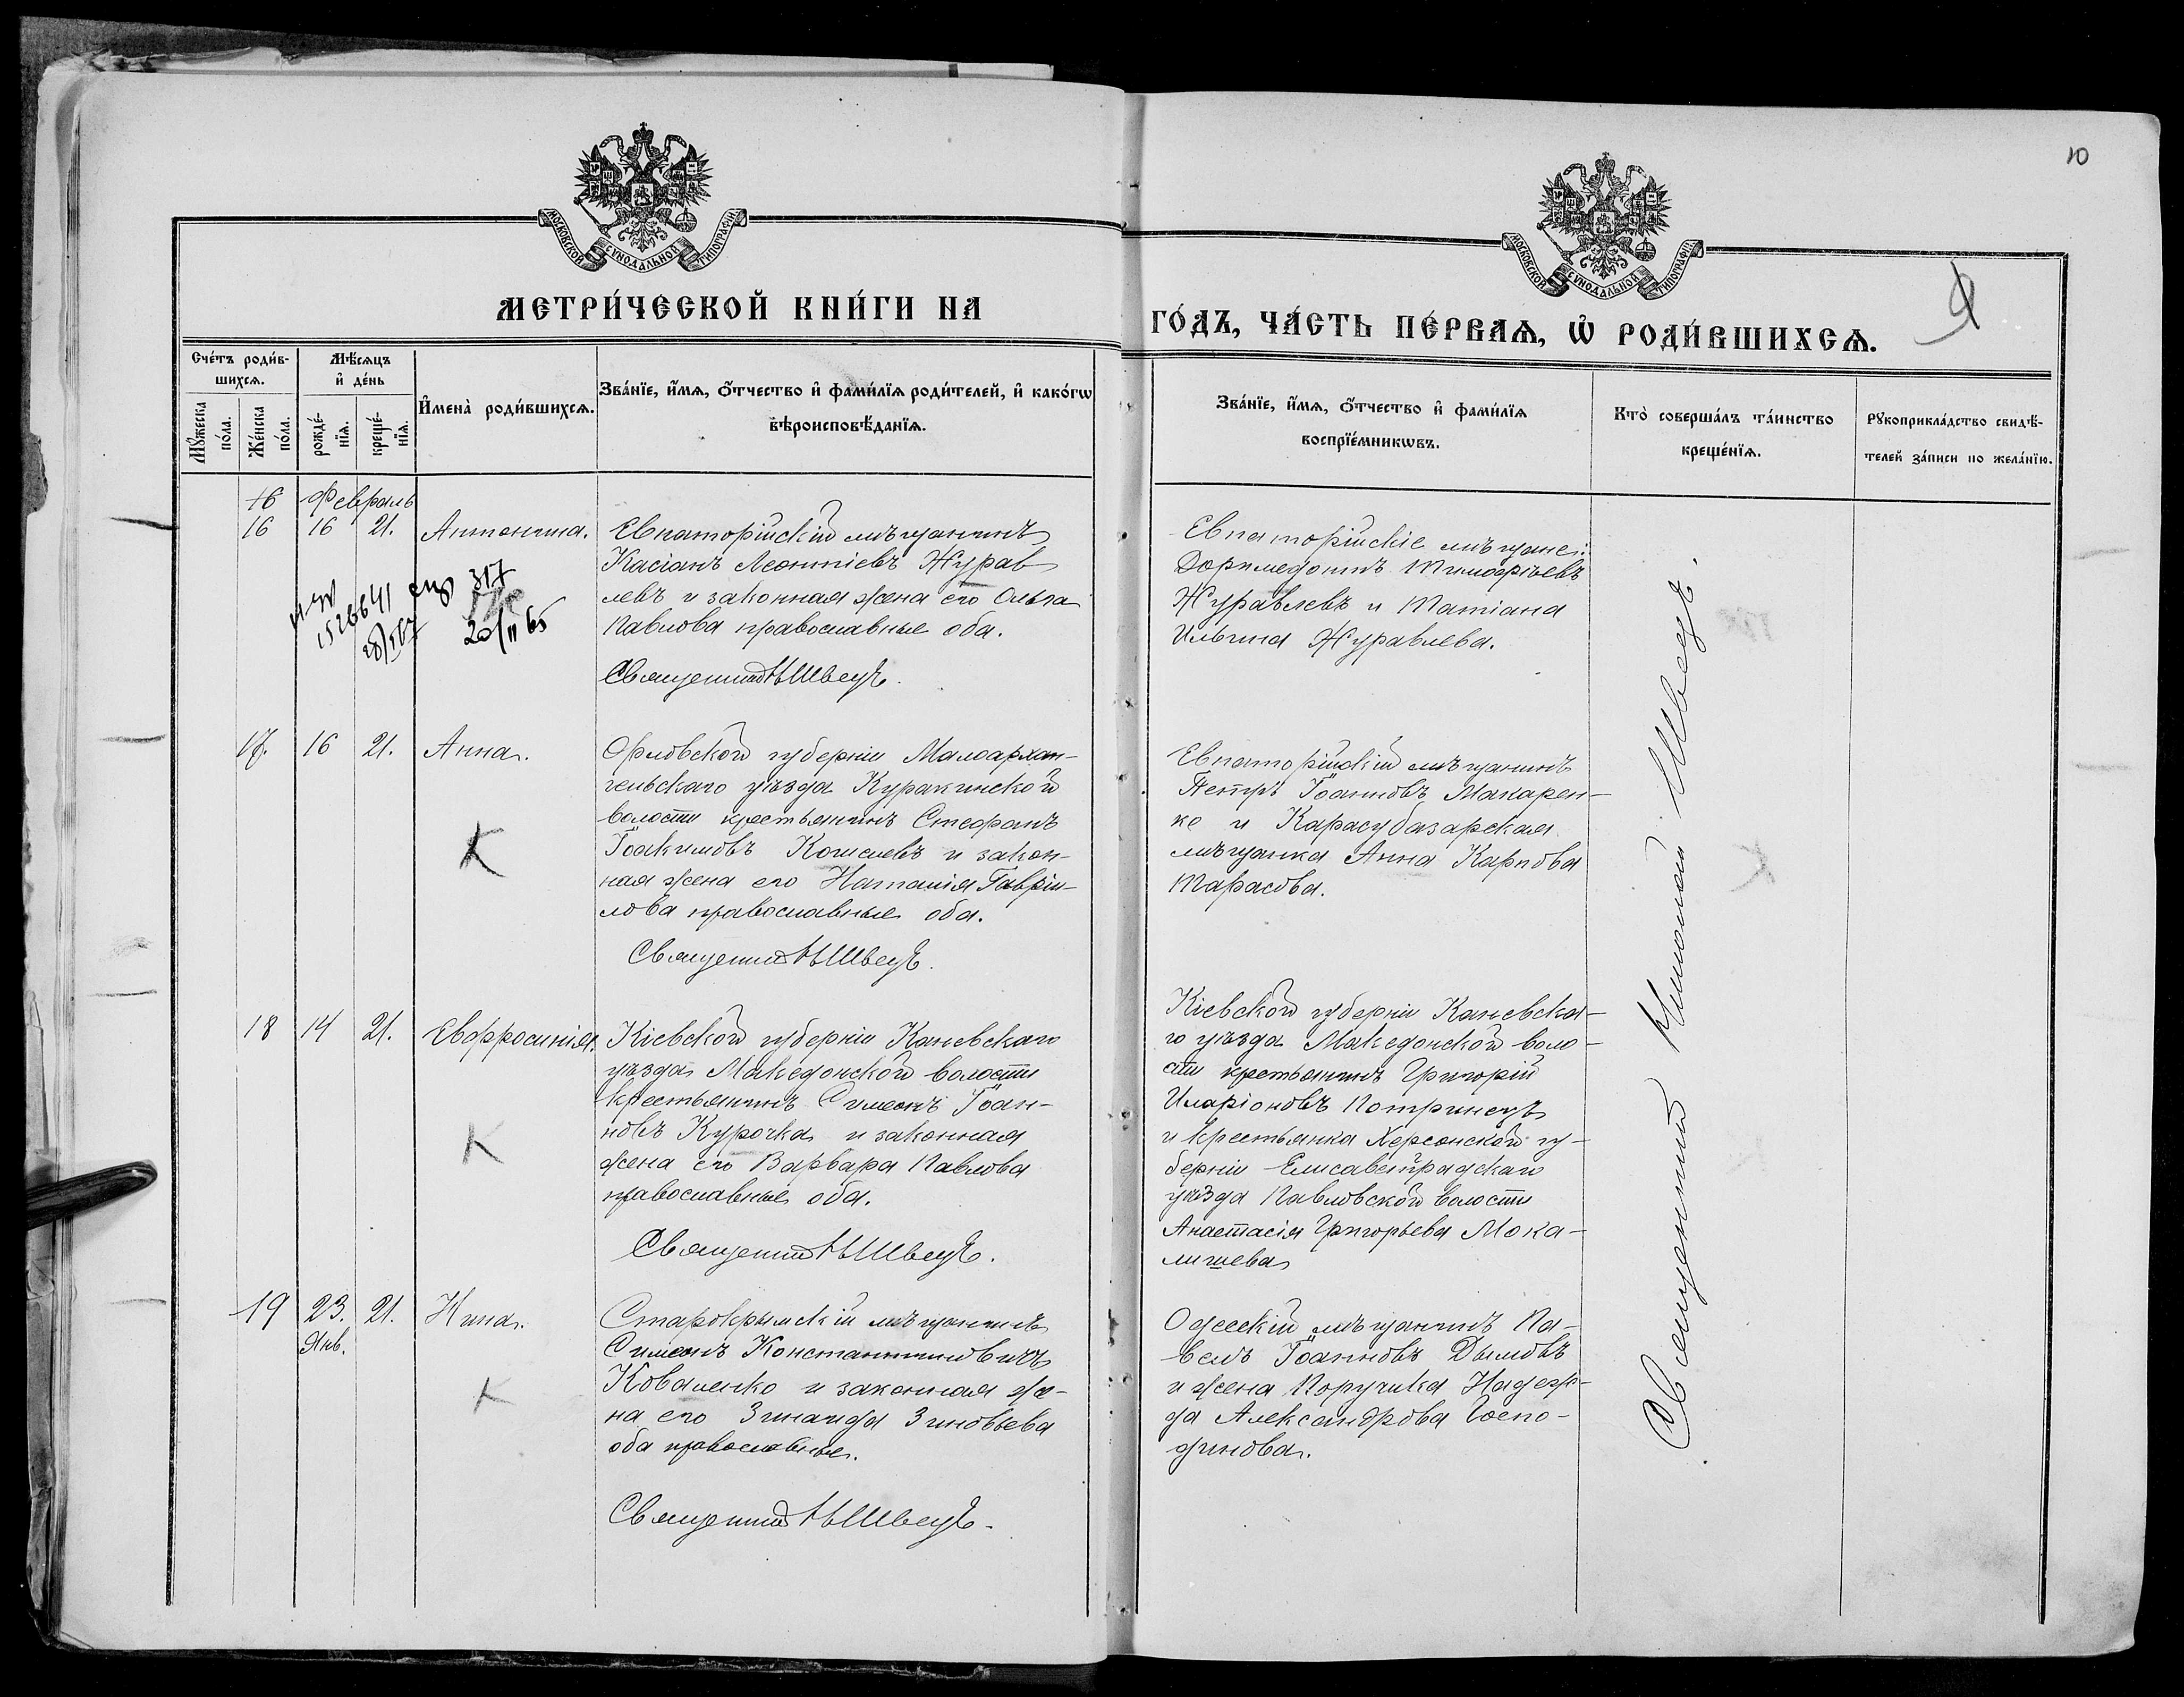 10
МОСКОВСКОЙ СѴНОДАЛЬНОЙ ТИПОГРАФІИ
МОСКОВСКОЙ СѴНОДАЛЬНОЙ ТИПОГРАФІИ
МЕТРИ́ЧЕСКОЙ КНИ́ГИ НА
ГО́ДЪ, ЧА́СТЬ ПЕ́РВАѦ, Ѡ҆ РОДИ́ВШИХСѦ.
9
Сче́тъ роди́в-
шихсѧ.
Мꙋ́жеска
по́ла.
Же́нска
по́ла.
Мѣ́сѧцъ
и҆ де́нь
рожде́-
нїѧ.
креще́-
нїѧ.
И҆мена̀ роди́вшихсѧ.
Зва́нїе, и҆́мѧ, ѻ҆́тчество и҆ фами́лїѧ роди́телей, и҆ како́гѡ
вѣроисповѣ́данїѧ.
Зва́нїе, и҆́мѧ, ѻ҆́тчество и҆ фами́лїѧ
воспрїе́мникѡвъ.
Кто̀ соверша́лъ та́инство
креще́нїѧ.
Рꙋкоприкла́дство свидѣ́-
телей за́писи по жела́нїю.
16 Февраль
16 16 21. Антонина.
Евпаторійскій мѣщанинъ
Касіанъ Леонтіевъ Журав
левъ и законная жена его Ольга
Павлова православные оба.
Священникъ Н Швецъ.
317
1526641
20/II 65
Евпаторійскіе мѣщане:
Доримедонтъ Тимофѣевъ
Журавлевъ и Татіана
Ильина Журавлева.
17. 16 21. Анна.
К
Орловской губерніи Малоархан-
гельскаго уѣзда Куракинской
волости крестьянинъ Стефанъ
Іоакимовъ Кошелевъ и закон-
ная жена его Наталія Гаврiи-
лова православные оба.
Священникъ Н Швецъ.
Евпаторійскій мѣщанинъ
Петръ Іоанновъ Макарен-
ко и Карасубазарская
мѣщанка Анна Карпова
Тарасова.
18 14 21. Евфросинія.
К
Кіевской губерніи Каневскаго
уѣзда Македонской волости
крестьянинъ Симеонъ Іоан-
новъ Курочка и законная
жена его Варвара Павлова
православные оба.
Священникъ Н Швецъ.
Кіевской губерніи Каневска-
го уѣзда Македонской воло-
сти крестьянинъ Григорій
Иларіоновъ
и крестьянка Херсонской гу-
берніи Елисаветградскаго
уѣзда Павловской волости
Анастасія Григорьева Мока-
лишева
19 23. 21. Нина.
Янв.
К
Старокрымскій мѣщанинъ
Симеонъ Константиновичъ
Коваленко и законная же-
на его Зинаида Зиновьева
оба православные.
Священникъ Н Швецъ.
Одесскій мѣщанинъ Па-
велъ Іоанновъ Дымовъ
и жена Поручика Надеж-
да Александрова Госпо-
динова.
Священникъ Николай Швецъ.